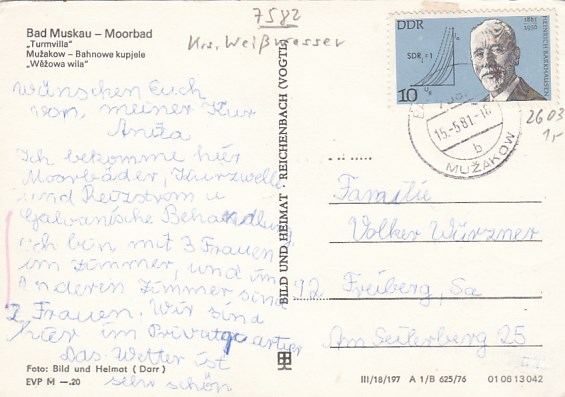 7582
Krs. Weißwasser
Bad Muskau – Moorbad
„Turmvilla"
Mužakow – Bahnowe kupjele
„Wěžowa wila"
wünschen Euch
von meiner Kur
Anita
Ich bekomme hier
Moorbäder, Kurzwelle
und Reizstrom u
Galvanische Behandlung
ich bin mit 3 Frauen
im Zimmer, und im
anderen Zimmer sind
2 Frauen. Wir sind
hier im Privatquartier
Das Wetter ist
sehr schön
Foto: Bild und Heimat (Darr)
EVP M –.20
BILD UND HEIMAT · REICHENBACH (VOGTL)
DDR
1881
1956
HEINRICH BARKHAUSEN
10
15.-5.81-16
b
MUŽAKOW
2603
1,-
Familie
Volker Würzner
92 Freiberg, Sa
Am Seilerberg 25
III/18/197 A 1/B 625/76 01 08 13 042